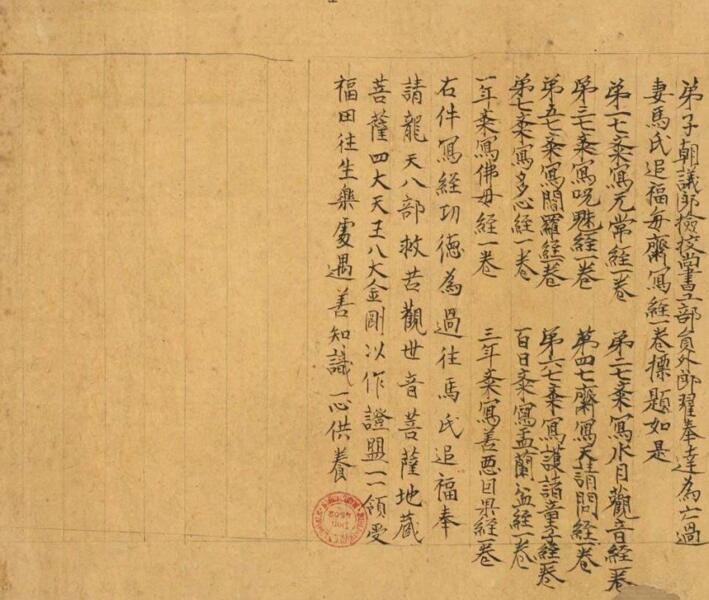 弟子朝議郎檢校尚書工部員外郎翟奉達為亡過
妻馬氏追福每齋寫經一卷標題如是
第一七齋寫无常經一卷 第二七齋寫水月觀音經一卷
第三七齋寫呪魅經一卷 第四七齋寫天請問經一卷
第五七齋寫閻羅經一卷 第六七齋寫護諸童子經一卷
第七齋寫多心經一卷 百日齋寫盂蘭盆經一卷
一年齋寫佛母經一卷 三年齋寫善惡因果經一卷
右件寫經功德為過往馬氏追福奉
請龍天八部救苦觀世音菩薩地藏
菩薩四大天王八大金剛以作證盟一一領受
福田往生樂處遇善知識一心供養